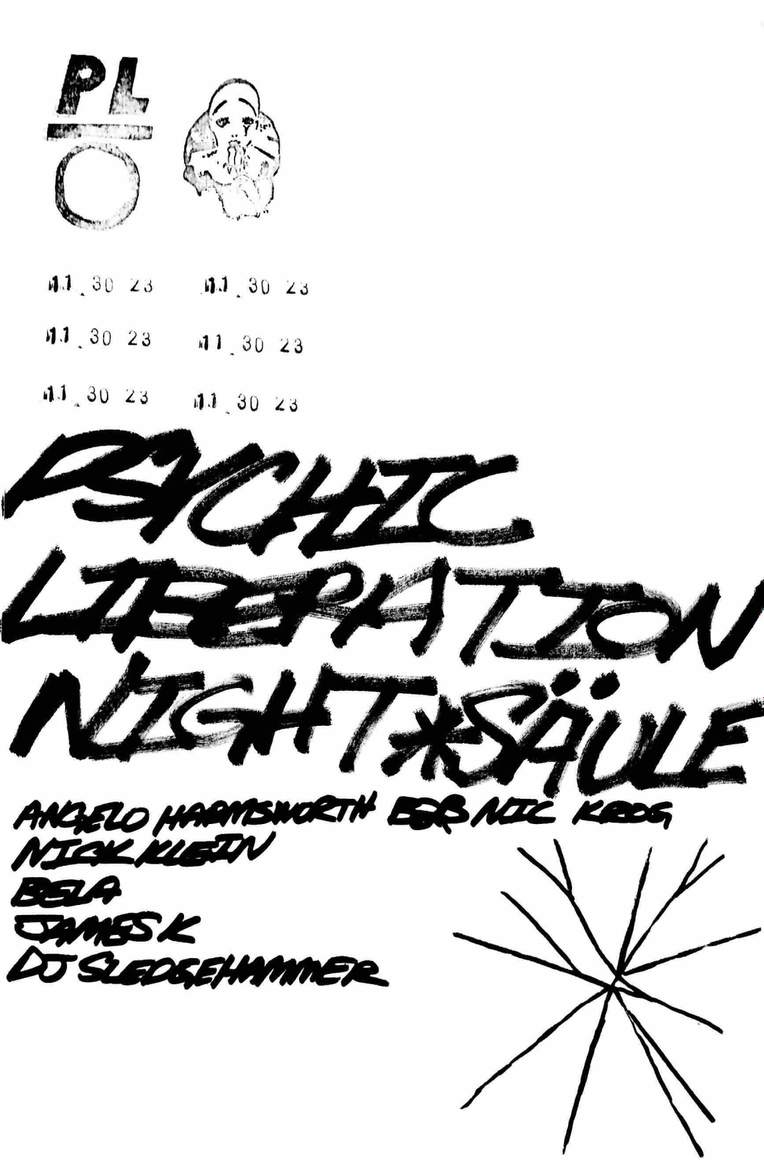 PL
O
11.30 23 11.30 23
11.30 23 11.30 23
11.30 23 11.30 23
PSYCHIC
LIBERATION
NIGHT*SÄULE
ANGELO HARMSWORTH B2B NIC KROG
NICK KLEIN
BELA
JAMES K
DJ SLEDGEHAMMER